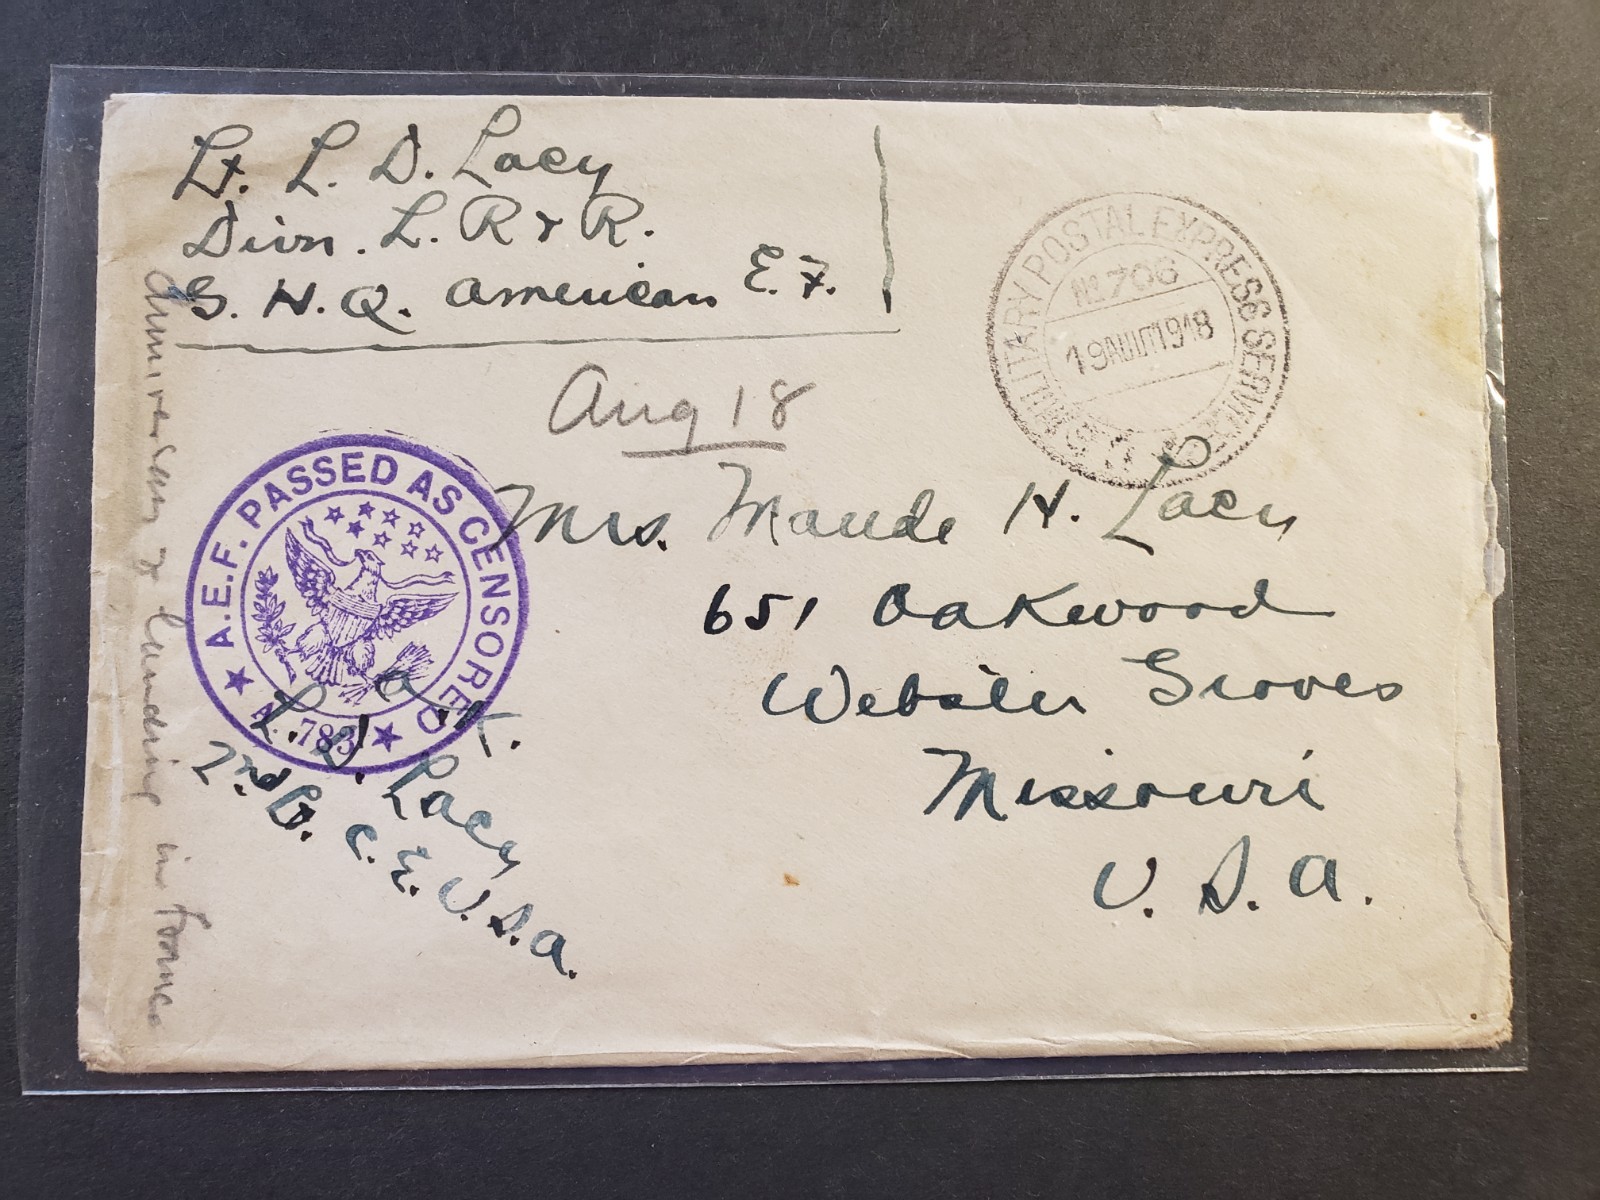 Lt. L. D. Lacy
Divn. L. R & R.
G. H. Q. American E. F.
MILITARY POSTAL EXPRESS SERVICE
No. 706
19 AOUT 1918
Aug 18
A.E.F. PASSED AS CENSORED
783
Mrs. Maude H. Lacy
651 Oakwood
Webster Groves
Missouri
U. S. A.
O. K.
L. D. Lacy
2nd Lt. C. E. U. S. A.
Anniversary & landing in France